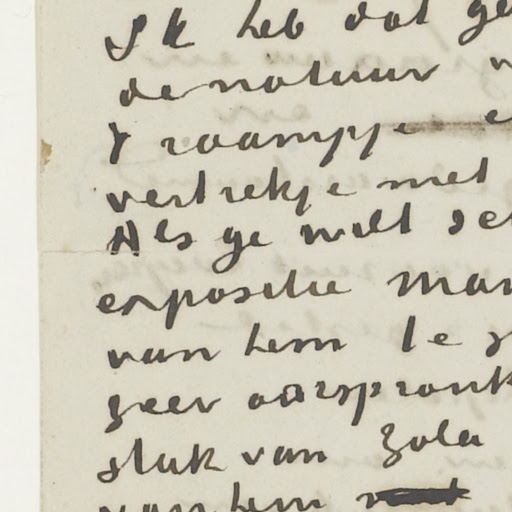 Ik heb dat ge
de natuur
't raampje e
vertrekje met
Als ge wilt
expositie Man
van hem te
zeer oorspronk
stuk van Zola
van hem